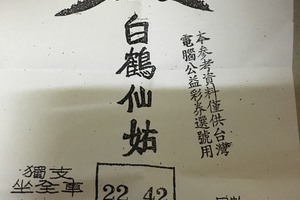 本參考資料僅供台灣
電腦公益彩券選號用
白鶴仙姑
獨支
坐全車
22 42